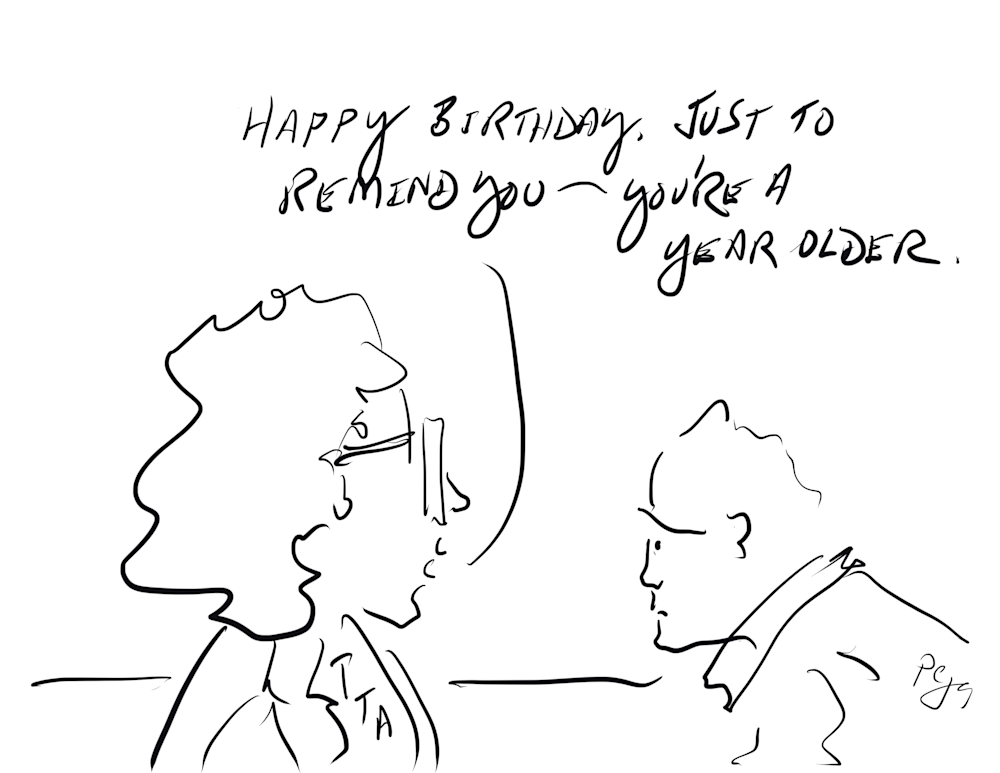 HAPPY BIRTHDAY. JUST TO
REMIND YOU — YOU'RE A
YEAR OLDER.
TTA